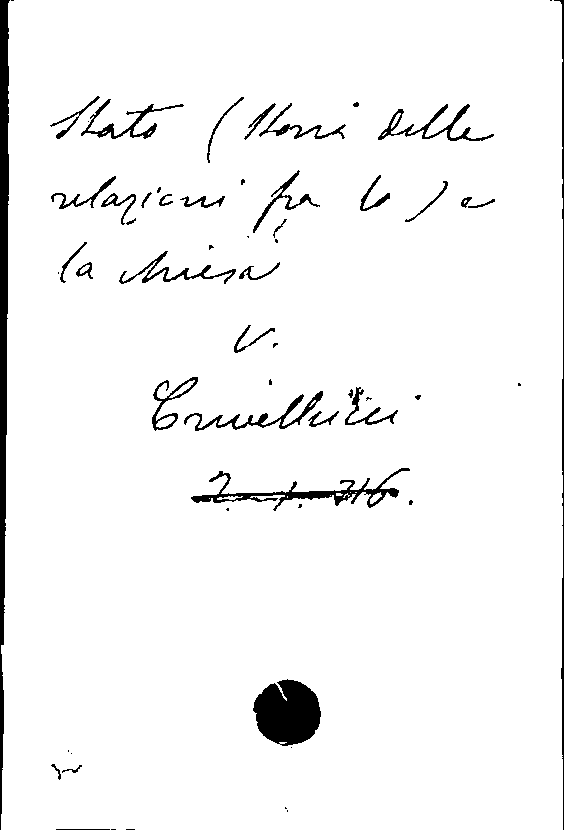 Stato (Storia delle
relazioni fra lo) e
la chiesa
V.
Crivellucci